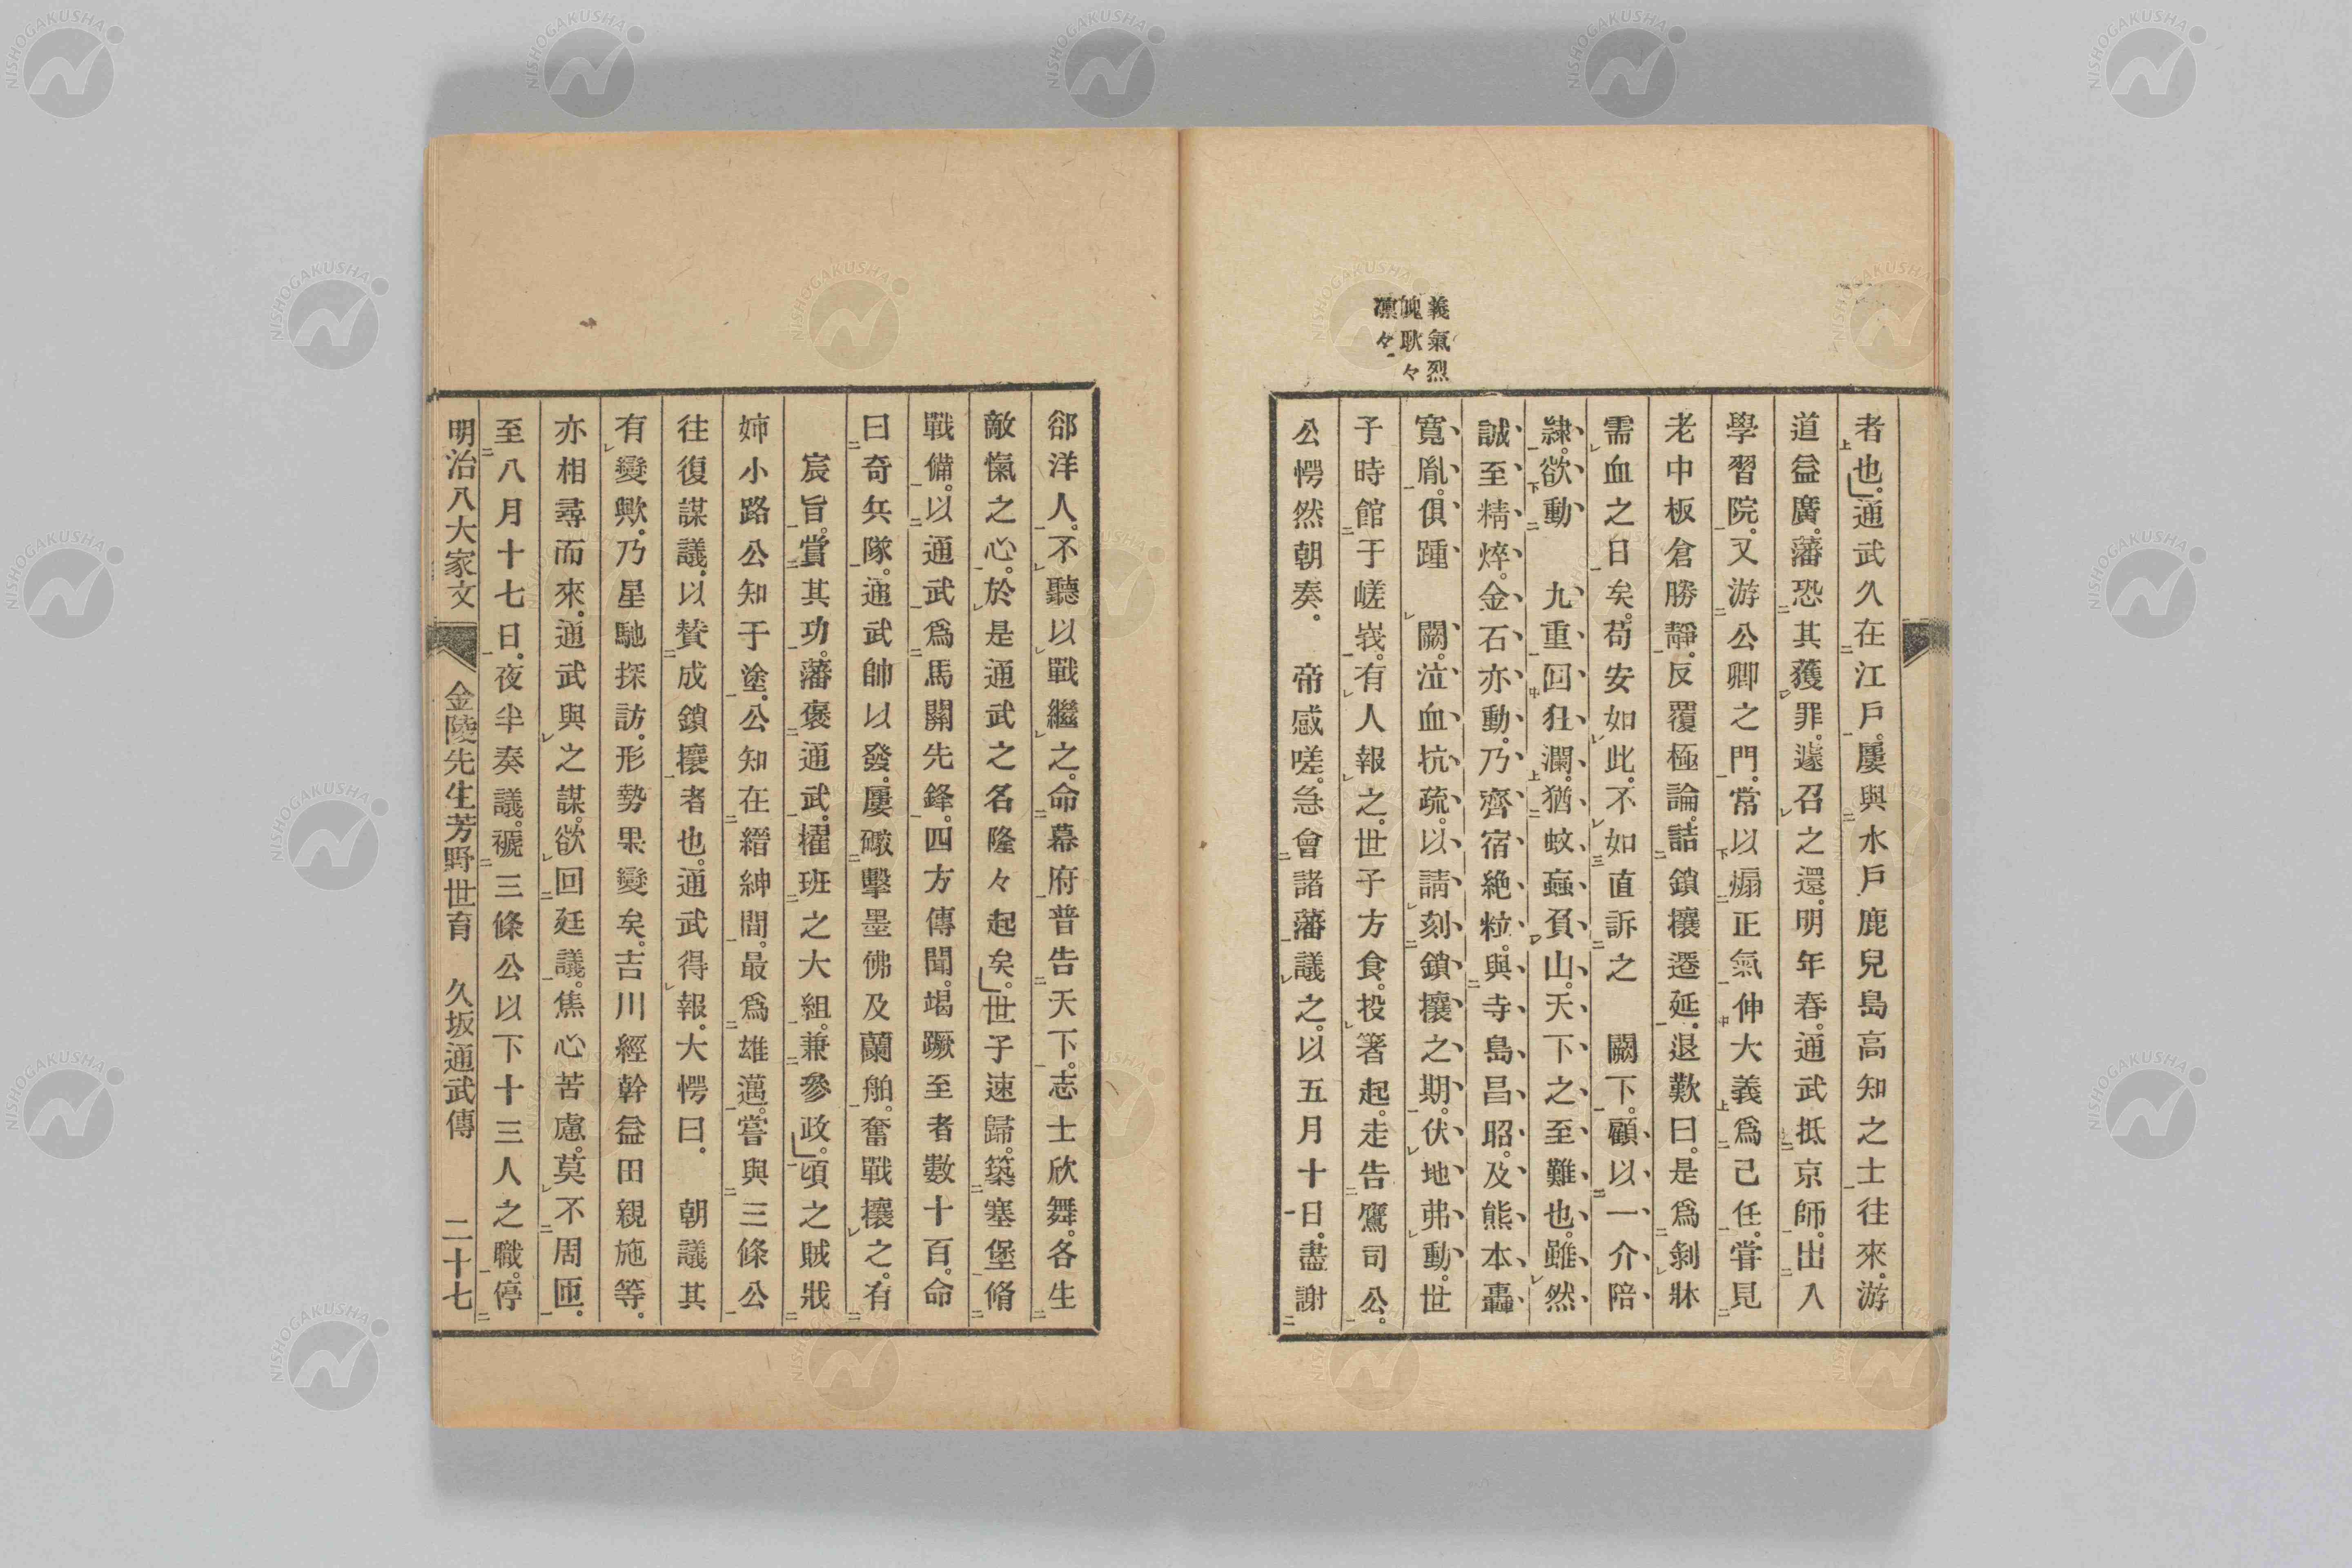 義氣烈
魄耿々
凛々
者也。通武久在江戶。屢與水戶鹿兒島高知之士往來。游
道益廣。藩恐其獲罪。遽召之還。明年春。通武抵京師。出入
學習院。又游公卿之門。常以煽正氣伸大義爲己任。嘗見
老中板倉勝靜。反覆極論。詰鎖攘遷延。退歎曰。是爲剝牀
需血之日矣。苟安如此。不如直訴之　闕下。顧以一介陪
隷。欲動　九重回狂瀾。猶蚊蝱負山。天下之至難也。雖然
誠至精焠。金石亦動。乃齊宿絶粒。與寺島昌昭。及熊本轟
寬胤。俱踵　闕。泣血抗疏。以請刻鎖攘之期。伏地弗動。世
子時館于嵯峩。有人報之。世子方食。投箸起。走告鷹司公。
公愕然朝奏。　帝感嗟。急會諸藩議之。以五月十日。盡謝
郤洋人。不聽以戰繼之。命幕府普告天下。志士欣舞。各生
敵愾之心。於是通武之名隆々起矣。世子速歸。築塞堡脩
戰備。以通武爲馬關先鋒。四方傳聞。竭蹶至者數十百。命
曰奇兵隊。通武帥以發。屢礮擊墨佛及蘭舶。奮戰攘之。有
宸旨。賞其功。藩褒通武。擢班之大組。兼參政。頃之賊戕
姉小路公知于塗。公知在縉紳間。最爲雄邁。嘗與三條公
往復謀議。以贊成鎖攘者也。通武得報。大愕曰。　朝議其
有變歟。乃星馳探訪。形勢果變矣。吉川經幹益田親施等。
亦相尋而來。通武與之謀。欲回廷議。焦心苦慮。莫不周匝。
至八月十七日。夜半奏議。褫三條公以下十三人之職。停
明治八大家文　金陵先生芳野世育　久坂通武傳　二十七
NISHOGAKUSHA